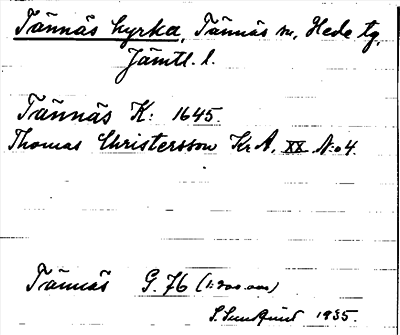 Tännäs kyrka, Tännäs sn, Hede tg,
Jämtl. l.
Tännäs K: 1645.
Thomas Christersson KrA, XX No 4.
Tännäs G. 76 (1:200.000)
S. Sundquist 1935.